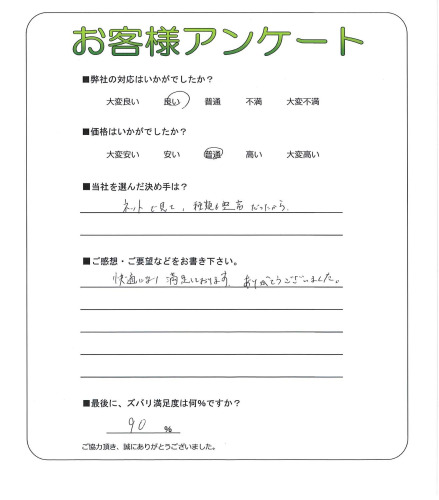 お客様アンケート
■弊社の対応はいかがでしたか？
大変良い 良い 普通 不満 大変不満
■価格はいかがでしたか？
大変安い 安い 普通 高い 大変高い
■当社を選んだ決め手は？
ネットで見て、種類も豊富だったから。
■ご感想・ご要望などをお書き下さい。
快適になり満足しております。ありがとうございました。
■最後に、ズバリ満足度は何%ですか？
90 %
ご協力頂き、誠にありがとうございました。